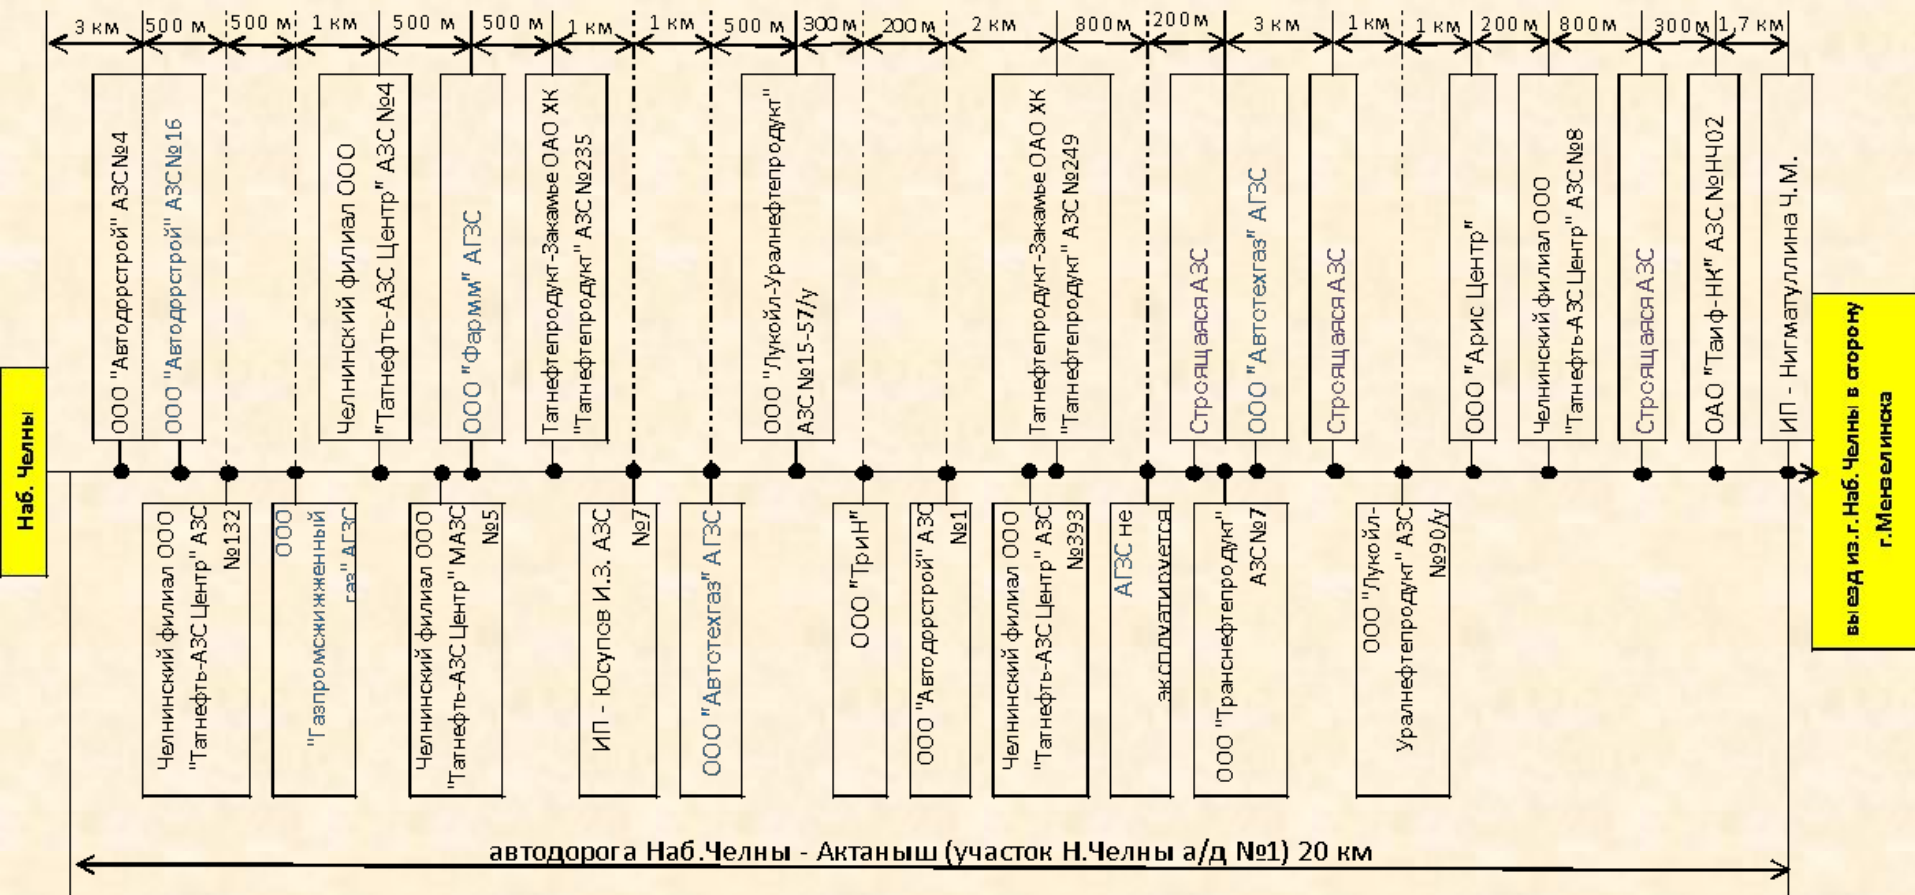 3 км
500 м
500 м
1 км
500 м
500 м
1 км
1 км
500 м
300м
200м
2 км
800м
200м
3 км
1 км
1 км
200м
800м
300м
1,7 км
Наб. Челны
ООО "Автодорстрой" АЗС№4
ООО "Автодорстрой" АЗС№16
Челнинский филиал ООО
"Татнефть-АЗС Центр" АЗС №4
ООО "Фармм" АГЗС
Татнефтепродукт-Закамье ОАО ХК
"Татнефтепродукт" АЗС №235
ООО "Лукойл-Уралнефтепродукт"
АЗС №15-57/у
Татнефтепродукт-Закамье ОАО ХК
"Татнефтепродукт" АЗС №249
Строящаяся АЗС
ООО "Автотехгаз" АГЗС
Строящаяся АЗС
ООО "Арис Центр"
Челнинский филиал ООО
"Татнефть-АЗС Центр" АЗС №8
Строящаяся АЗС
ОАО "Таиф-НК" АЗС №НЧ02
ИП - Нигматуллина Ч.М.
Челнинский филиал ООО
"Татнефть-АЗС Центр" АЗС
№132
ООО
"Газпромсжиженный
газ" АГЗС
Челнинский филиал ООО
"Татнефть-АЗС Центр" МАЗС
№5
ИП - Юсупов И.З. АЗС
№7
ООО "Автотехгаз" АГЗС
ООО "ТриН"
ООО "Автодорстрой" АЗС
№1
Челнинский филиал ООО
"Татнефть-АЗС Центр" АЗС
№393
АГЗС не
эксплуатируется
ООО "Транснефтепродукт"
АЗС№7
ООО "Лукойл-
Уралнефтепродукт" АЗС
№90/у
выезд из.г.Наб.Челны в сторону
г.Мензелинска
автодорога Наб.Челны - Актаныш (участок Н.Челны а/д №1) 20 км